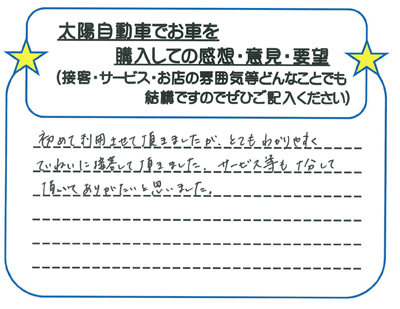 太陽自動車でお車を
購入しての感想・意見・要望
(接客・サービス・お店の雰囲気等どんなことでも
結構ですのでぜひご記入ください)
初めて利用させて頂きましたが、とてもわかりやすく
ていねいに接客して頂きました。サービス等も十分して
頂いてありがたいと思いました。